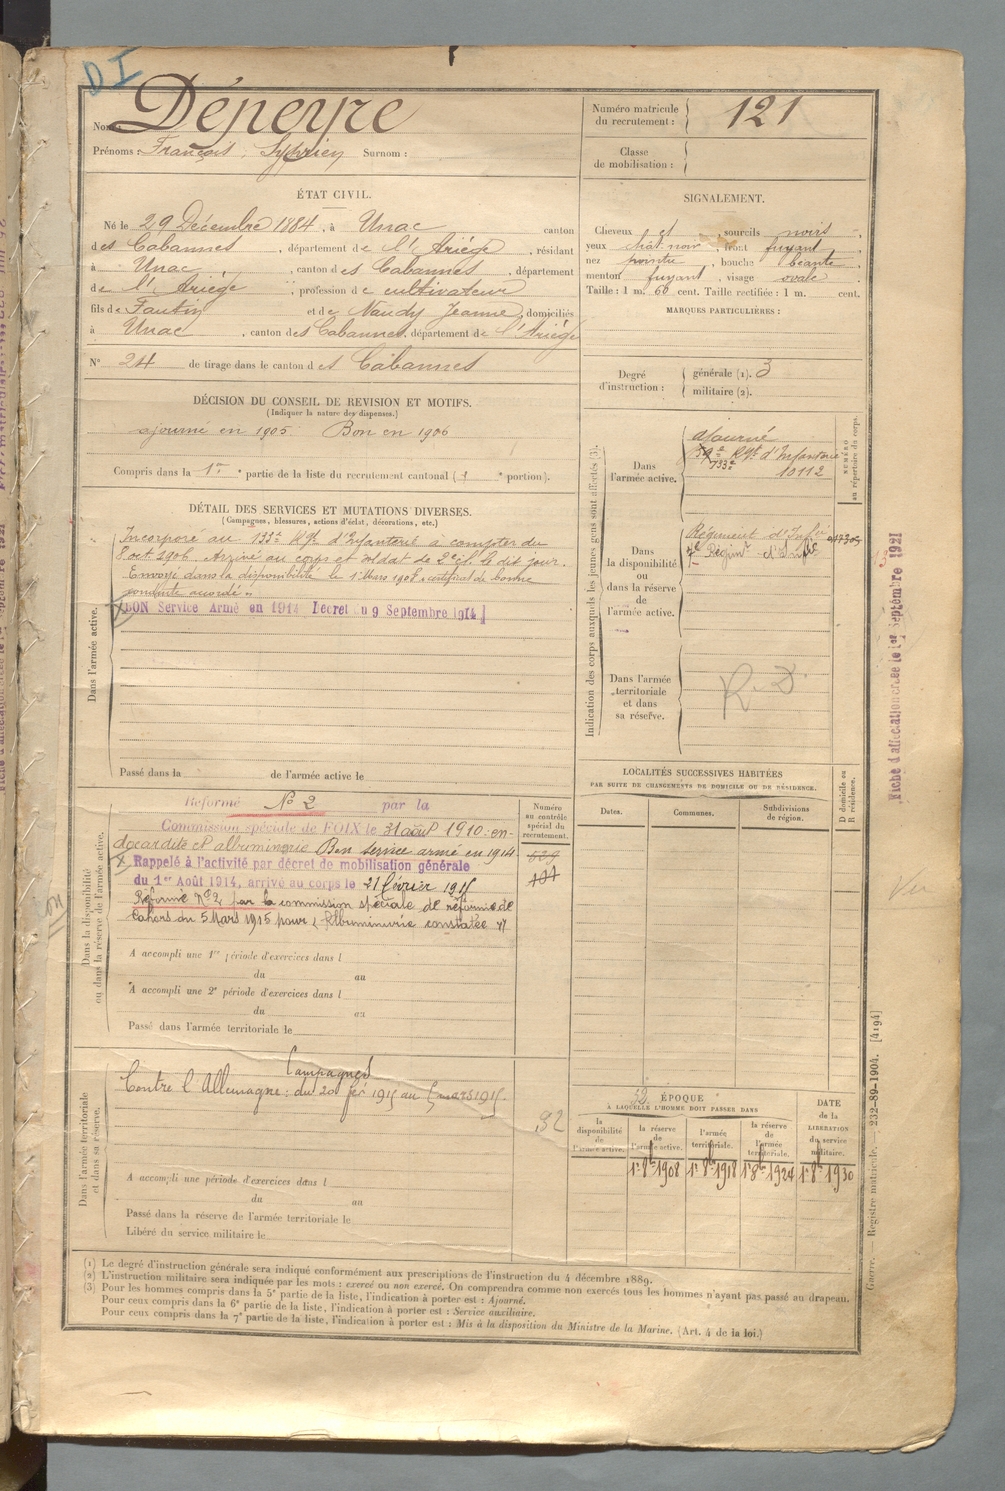 D I
Nom: Dépeyre
Prénoms: François, Cyprien Surnom :
Numéro matricule du recrutement : 121
Classe de mobilisation :
ÉTAT CIVIL.
Né le 29 Décembre 1884, à Unac canton
des Cabannes, département de l'Ariège, résidant
à Unac, canton des Cabannes, département
de l'Ariège, profession de cultivateur
fils de Fautin et de Naudy Jeanne, domiciliés
à Unac, canton des Cabannes, département de l'Ariège
N° 24 de tirage dans le canton des Cabannes
SIGNALEMENT.
Cheveux et sourcils noirs
yeux chât-noir, front fuyant
nez pointu, bouche béante
menton fuyant, visage ovale
Taille : 1 m. 60 cent. Taille rectifiée : 1 m. cent.
MARQUES PARTICULIÈRES :
Degré d'instruction : générale (1). 3
militaire (2).
DÉCISION DU CONSEIL DE REVISION ET MOTIFS.
(Indiquer la nature des dispenses.)
ajourné en 1905 Bon en 1906
Compris dans la 1re partie de la liste du recrutement cantonal (1 portion).
DÉTAIL DES SERVICES ET MUTATIONS DIVERSES.
(Campagnes, blessures, actions d'éclat, décorations, etc.)
Dans l'armée active.
Incorporé au 133e Rgt d'Infanterie à compter du
8 oct 1906. Arrivé au corps et soldat de 2e cl. le dit jour.
Envoyé dans la disponibilité le 1er Mars 1908, certificat de bonne
conduite accordé.
BON Service Armé en 1914 Décret du 9 Septembre 1914
Passé dans la de l'armée active le
Indication des corps auxquels les jeunes gens sont affectés (3).
NUMÉRO au répertoire du corps.
Dans l'armée active.
Ajourné
59e Rgt d'Infanterie
133e 10112
Dans la disponibilité ou dans la réserve de l'armée active.
Régiment d'Infie
Régimt d'Infie
Dans l'armée territoriale et dans sa réserve.
R.D.
LOCALITÉS SUCCESSIVES HABITÉES
PAR SUITE DE CHANGEMENTS DE DOMICILE OU DE RÉSIDENCE.
Dates. Communes. Subdivisions de région. D domicile ou R résidence.
Dans la disponibilité ou dans la réserve de l'armée active.
Numéro au contrôle spécial du recrutement.
Réformé N° 2 par la
Commission spéciale de FOIX le 31 août 1910 : en-
docardite et albuminurie Bon service armé en 1914
Rappelé à l'activité par décret de mobilisation générale
du 1er Août 1914, arrivé au corps le 21 février 1915
Réformé N° 2, par la commission spéciale de réforme de
Cahors du 5 Mars 1915 pour "Albuminurie constatée"
A accompli une 1re période d'exercices dans l
du au
A accompli une 2e période d'exercices dans l
du au
Passé dans l'armée territoriale le
Dans l'armée territoriale et dans sa réserve.
Campagnes
Contre l'Allemagne : du 20 fév 1915 au 5 mars 1915.
92
A accompli une période d'exercices dans l
du au
Passé dans la réserve de l'armée territoriale le
Libéré du service militaire le
ÉPOQUE
À LAQUELLE L'HOMME DOIT PASSER DANS
la disponibilité de l'armée active. la réserve de l'armée active. l'armée territoriale. la réserve de l'armée territoriale. DATE de la LIBÉRATION du service militaire.
1er 8bre 1908 1er 8bre 1918 1er 8bre 1924 1er 8bre 1930
(1) Le degré d'instruction générale sera indiqué conformément aux prescriptions de l'instruction du 4 décembre 1889.
(2) L'instruction militaire sera indiquée par les mots : exercé ou non exercé. On comprendra comme non exercés tous les hommes n'ayant pas passé au drapeau.
(3) Pour les hommes compris dans la 5e partie de la liste, l'indication à porter est : Ajourné.
Pour ceux compris dans la 6e partie de la liste, l'indication à porter est : Service auxiliaire.
Pour ceux compris dans la 7e partie de la liste, l'indication à porter est : Mis à la disposition du Ministre de la Marine. (Art. 4 de la loi.)
Fiche d'affectation créée le 1er Septembre 1921
Vu
Guerre. — Registre matricule. — 232-89-1904. [4194]